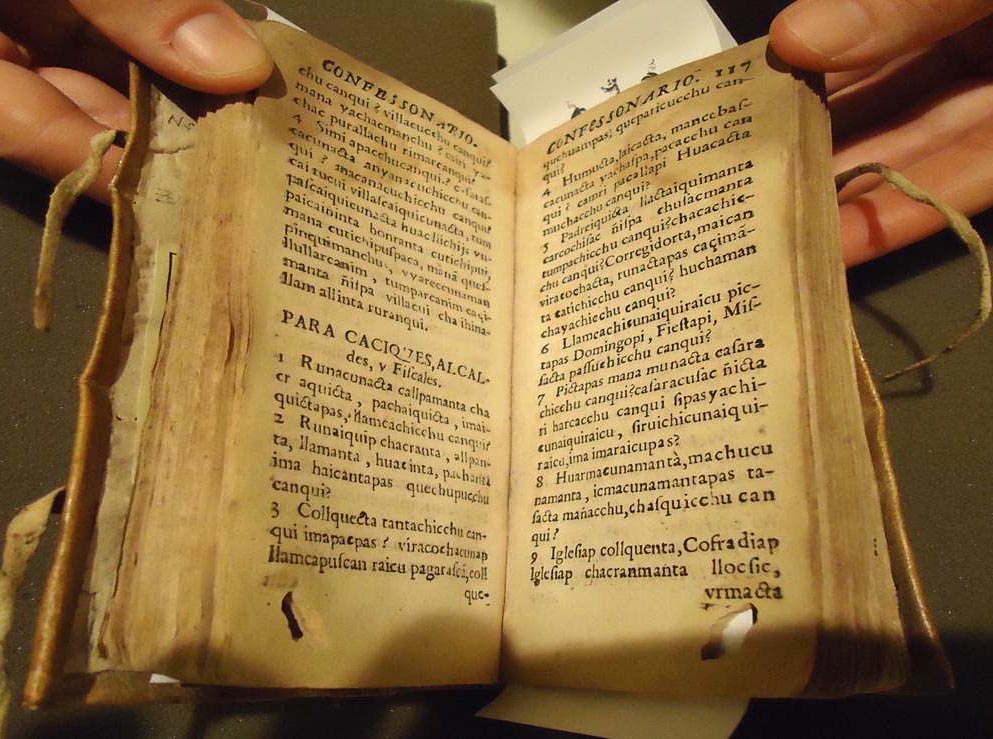 CONFESSONARIO.
chu canqui? villacucchu canqui?
mana yachacmanchu?
chac purallachu rimarcanqui?
4 Simi apacchucanqui,
cacunacta
qui? anaconacuchicchu canqui?
mana cutichipuspaca, mana
llullarcanim, tumparcanim
manta ñispa villacui cha ihina-
llam allinta ruranqui.
PARA CACIQVES, ALCAL-
des, y Fiscales.
1 Runacunacta callpamanta cha
er aquicta, pachaiquicta, imai-
quictapas, llamcachicchu canqui?
2 Runaiquip chacranta, allpan-
ta, llamanta, huacinta, pachanta
ima haicantapas quechupucchu
canqui?
3 Collquecta tantachicchu can-
qui imapacpas? viracochacunap
llamcapuscan raicu pagarascã, coll
que-
CONFESSONARIO. 117
quechuampas, queparicucchu can-
qui?
4 Humucta, laicacta, mancebas-
cacunacta yachaspa, pacacchu can
qui? cam pacallapi Huacacta
muchacchu canqui?
5 Padreiquicta llactaiquimanta
carcochisac ñispa chusacmanta
tumpachicchu canqui? chacachic-
chu canqui? Corregidorta, maican
viracochacta, runactapas caçimã-
ta catichicchu canqui? huchaman
chayachicchu canqui?
6 Llamcachicunaiquiraicu pic-
tapas Domingopi, Fiestapi, Mis-
sacta passuchicchu canqui?
7 Pictapas mana munacta casara
chicchu canqui? casaracusac ñicta
ri harcacchu canqui sipasyachi-
cunaiquiraicu, siruichicunaiqui-
raicu, ima imaraicupas?
8 Huarmacunamantà, machucu
namanta, icmacunamantapas ta-
sacta mañacchu, chasquicchu can
qui?
9 Iglesiap collquenta, Cofradiap
Iglesiap chacranmanta llocsic,
vrmacta